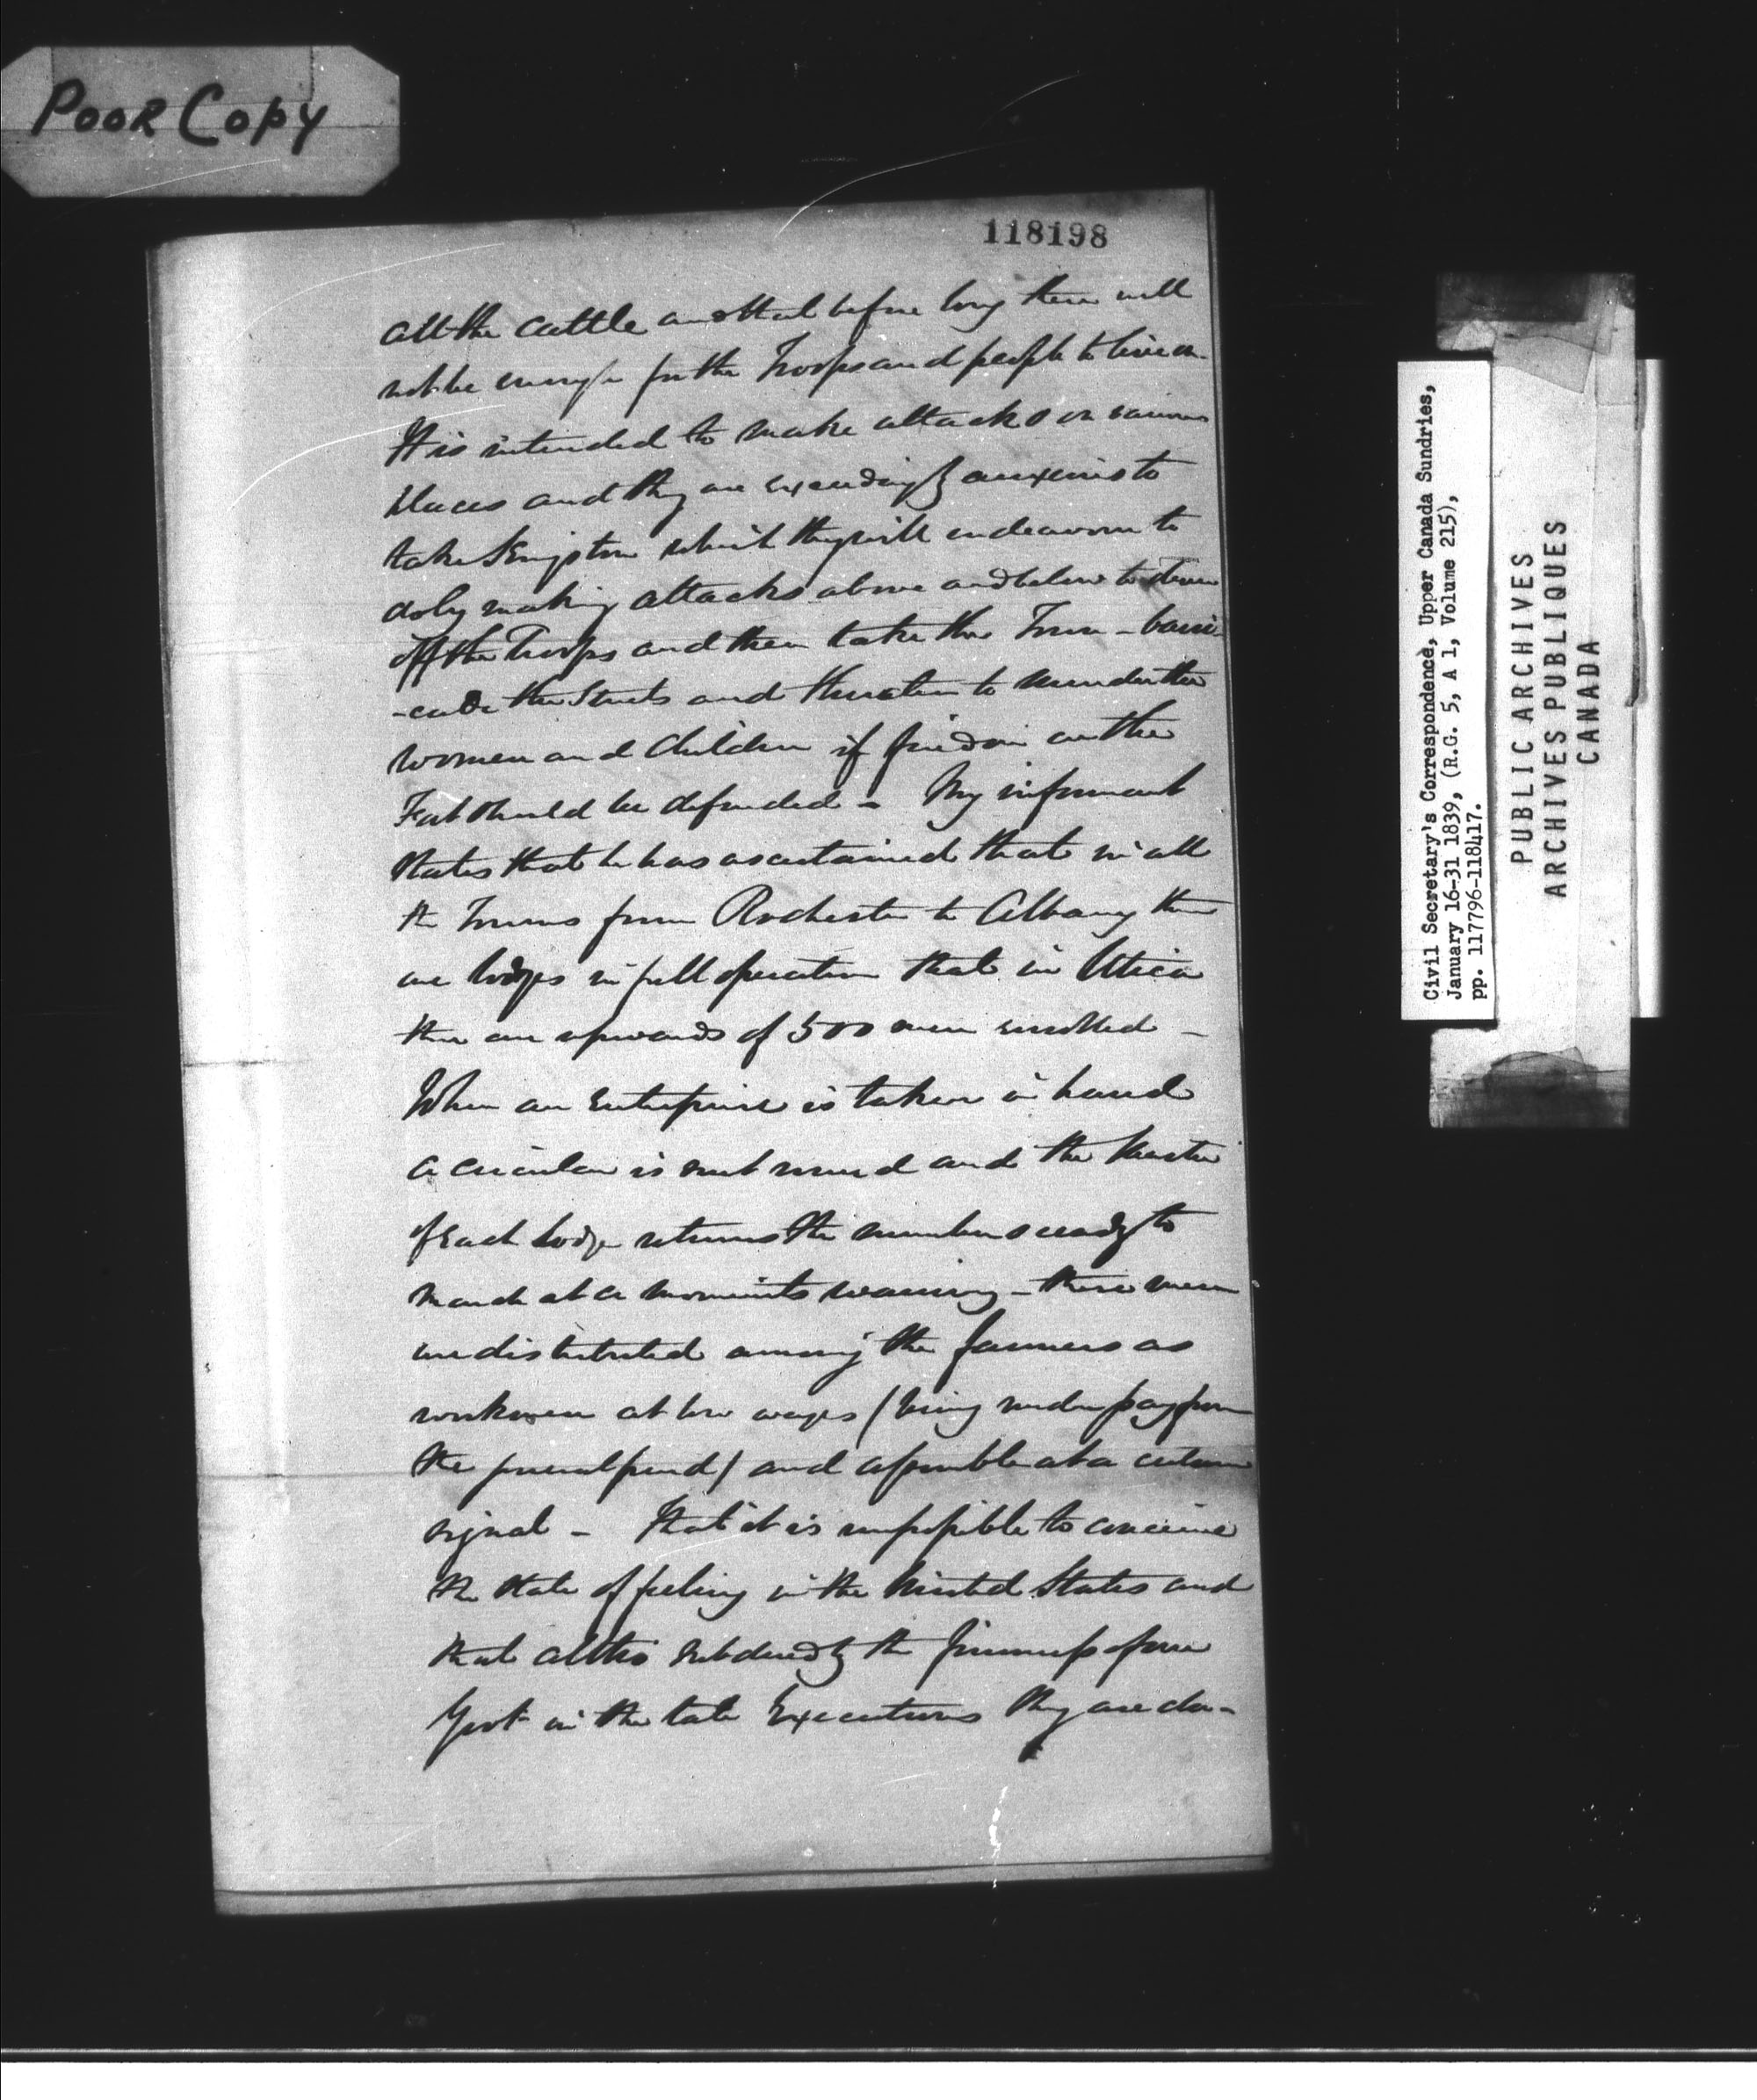 POOR COPY
118198
all the cattle and that before long there will
not be enough for the Troops and people to live on.
It is intended to make attacks on various
places and they are exceedingly anxious to
take Kingston which they will endeavour to
do by making attacks above and below to draw
off the Troops and then take the Town - barri-
-cade the Streets and threaten to murder the
women and Children if fired on or the
Fort should be defended - My informant
states that he has ascertained that in all
the Towns from Rochester to Albany there
are lodges in full operation that in Utica
there are upwards of 500 men enrolled -
When an Enterprise is taken in hand
a circular is sent round and the Master
of Each Lodge returns the numbers ready to
march at a moments warning - these men
are distributed among the farmers as
workmen at low wages (being under pay from
the general fund) and assemble at a certain
signal - That it is impossible to conceive
the state of feeling in the United States and
that altho subdued by the firmness of our
Govt in the late Executions they are de-
Civil Secretary's Correspondence, Upper Canada Sundries,
January 16-31 1839, (R.G. 5, A 1, Volume 215),
pp. 117796-118417.
PUBLIC ARCHIVES
ARCHIVES PUBLIQUES
CANADA